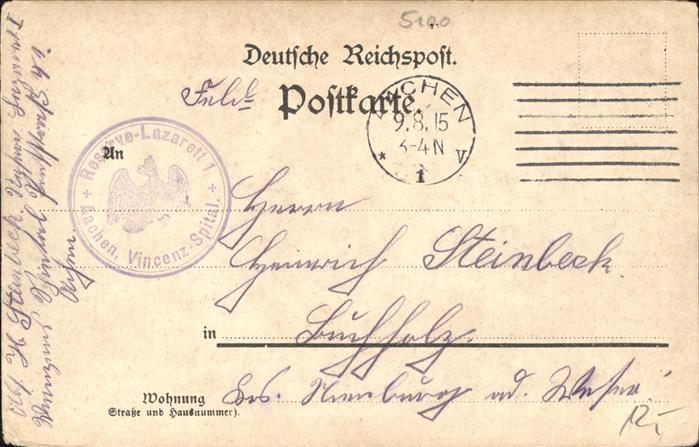 5100
Deutsche Reichspost.
Feld-
Postkarte.
AACHEN
9.8.15
3-4N
* 1 V
Reserve-Lazarett 1
Aachen, Vincenz-Spital.
An
Herrn
Heinrich Steinbeck.
in Buchholz.
Wohnung Bes. Nienburg ad. Weser.
(Straße und Hausnummer).
12,-
H. Steinbeck
Aachen